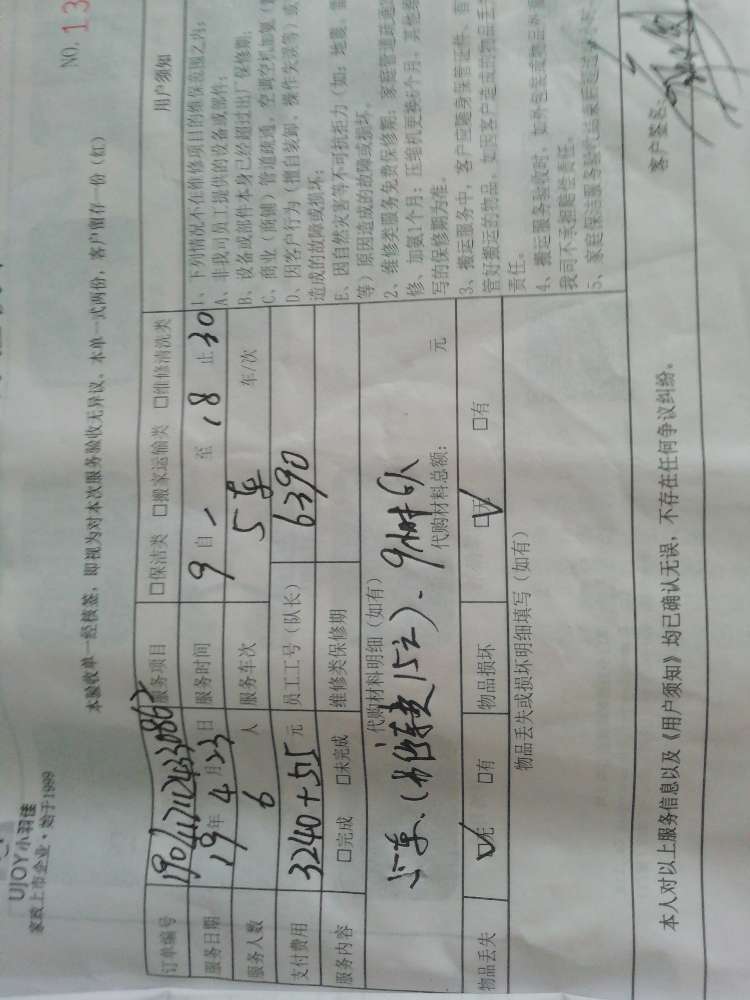 UJOY小羽佳
家政上市企业·始于1999
NO. 13
本验收单一经核签，即视为对本次服务验收无异议。本单一式两份，客户留存一份（红）
订单编号 服务项目 □保洁类 □搬家运输类 □维修清洗类
服务日期 19年4月23日 服务时间 9 自 至 18 止 30
服务人数 6 人 服务车次 5车 车/次
支付费用 3240+515 元 员工工号（队长） 6390
服务内容 □完成 □未完成 维修类保修期
代购材料明细（如有）
代购材料总额： 元
物品丢失 ☑无 □有 物品损坏 ☑无 □有
物品丢失或损坏明细填写（如有）
用户须知
1、下列情况不在维修项目的维保范围之内：
A、非我司员工提供的设备或部件；
B、设备或部件本身已经超过出厂保修期；
C、商业（商铺）管道疏通、空调空机加氨（
D、因客户行为（擅自装卸、操作失误等）或
造成的故障或损坏；
E、因自然灾害等不可抗拒力（如：地震、雷
等）原因造成的故障或损坏。
2、维修类服务免费保修期：家庭管道疏通
修、加氨1个月；压缩机更换6个月，其他维
写的保修期为准。
3、搬运服务中，客户应随身保管证件、首
管好搬运的物品，如因客户造成的物品丢
责任。
4、搬运服务验收时，如外包装或物品外
我司不承担赔偿责任。
5、家庭保洁服务验收结束后超过
本人对以上服务信息以及《用户须知》均已确认无误，不存在任何争议纠纷。
客户签名：